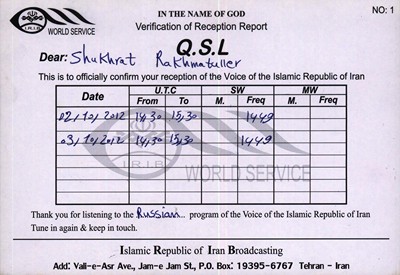 IN THE NAME OF GOD
NO: 1
IRIB
WORLD SERVICE
Verification of Reception Report
Q.S.L
Dear: Shukhrat Rakhmatuller
This is to officially confirm your reception of the Voice of the Islamic Republic of Iran
Date U.T.C SW MW
From To M. Freq M. Freq
02/10/2012 14,30 15,30 1449
03/10/2012 14,30 15,30 1449
IRIB
WORLD SERVICE
Thank you for listening to the Russian program of the Voice of the Islamic Republic of Iran
Tune in again & keep in touch.
Islamic Republic of Iran Broadcasting
Add: Vali-e-Asr Ave., Jam-e Jam St., P.O. Box: 19395-6767 Tehran - Iran